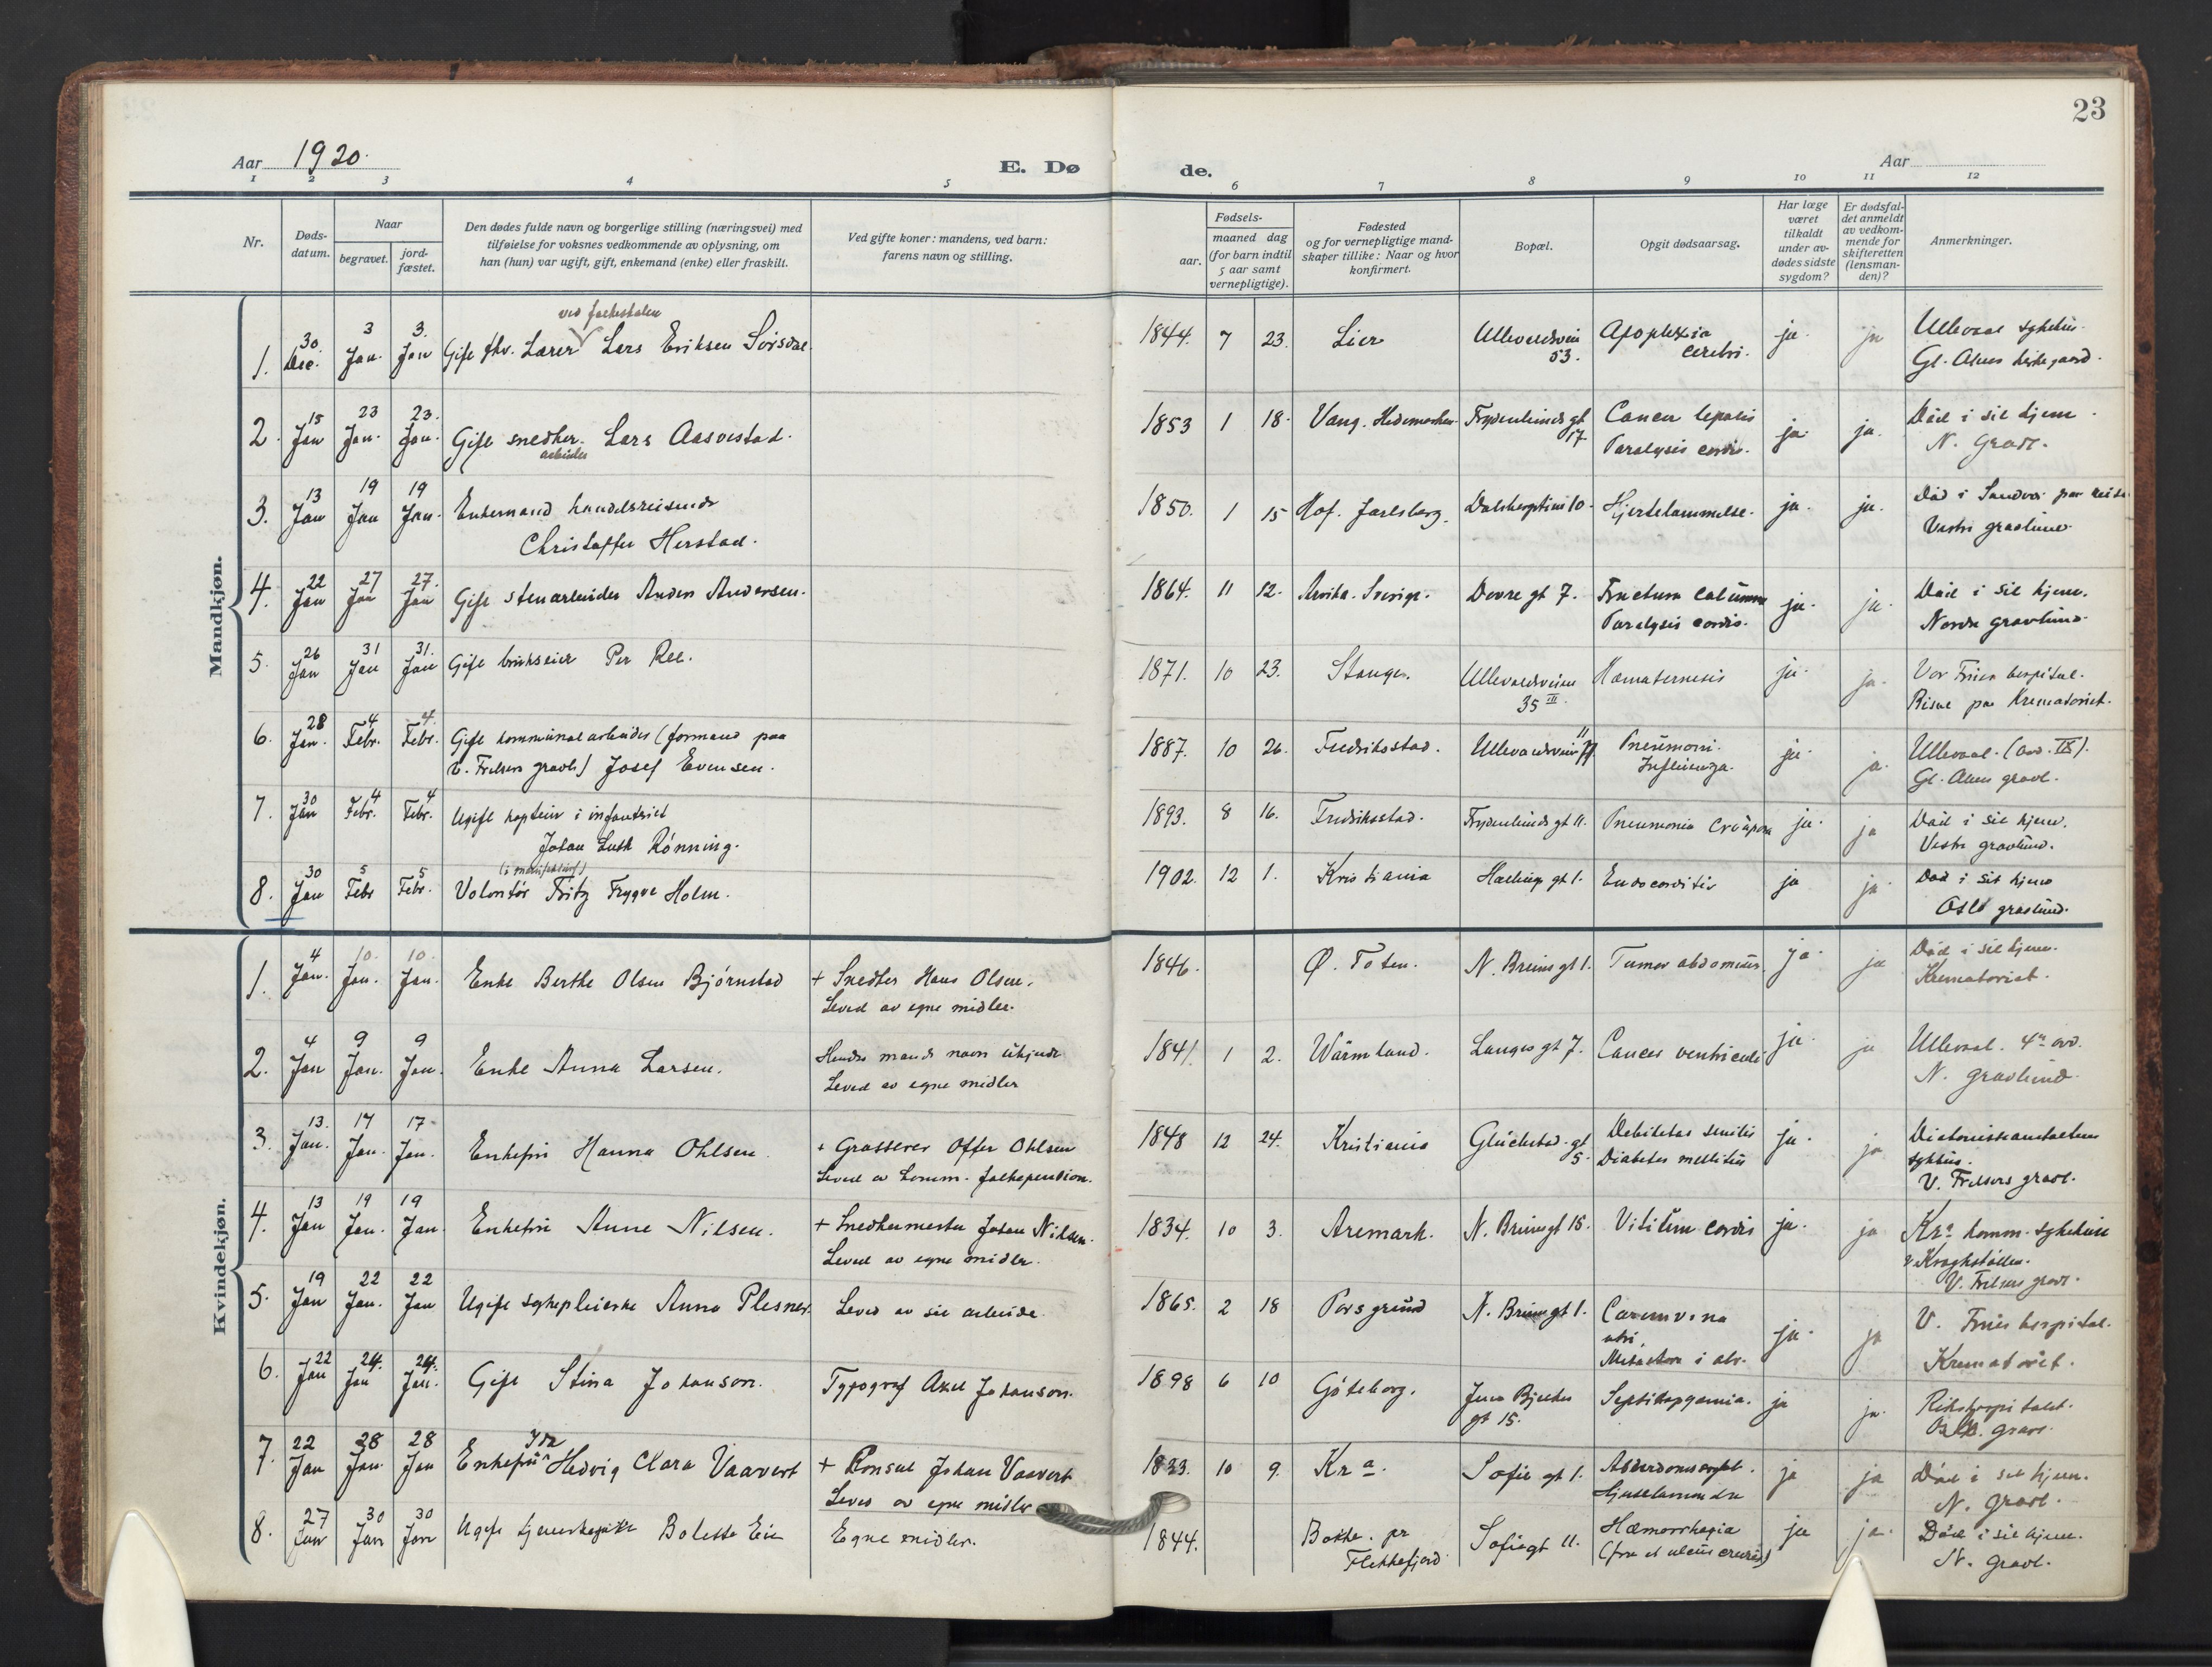 23
Aar 1920.
E. Dø de.
Aar
1 2 3 4 5 6 7 8 9 10 11 12
Nr.
Døds-
datum.
Naar
begravet.
jord-
fæstet.
Den dødes fulde navn og borgerlige stilling (næringsvei) med
tilføielse for voksnes vedkommende av oplysning, om
han (hun) var ugift, gift, enkemand (enke) eller fraskilt.
Ved gifte koner: mandens, ved barn:
farens navn og stilling.
Fødsels-
aar.
maaned dag
(for barn indtil
5 aar samt
vernepligtige).
Fødested
og for vernepligtige mand-
skaper tillike: Naar og hvor
konfirmert.
Bopæl.
Opgit dødsaarsag.
Har læge
været
tilkaldt
under av-
dødes sidste
sygdom?
Er dødsfal-
det anmeldt
av vedkom-
mende for
skifteretten
(lensman-
den)?
Anmerkninger.
Mandkjøn.
ved folkeskolen
1. 30 Dec. 3 Jan. 3. Jan Gift fhv. Lærer Lars Eriksen Sørsdal. 1844. 7 23. Lier Ullevoldsvein 53. Apoplexia cerebri. ja. ja Ullevaal sykehus.
Gl. Akers kirkegaard.
2. 15 Jan 23 Jan. 23. Jan. Gift snedker Lars Aasvestad. 1853 1 18. Vang. Hedemarken Frydenlunds gt 17. Cancer hepatis ja. ja. Død i sit hjem.
arbeider Paralysis cordis. N. Gravl.
3. 13 Jan 19 Jan 19 Jan. Enkemand handelsreisende 1850. 1 15 Hof. Jarlsberg. Dalsbergstien 10. Hjertelammelse. ja. ja. Død i Sandvi paa reise
Christoffer Herstad. Vestre gravlund.
4. 22 Jan 27 Jan 27. Jan Gift stenarbeider Anders Andersen. 1864. 11 12. Arvika. Sverige. Dovre gt 7. Fractura columna ja. ja. Død i sit hjem.
Paralysis cordis. Nordre gravlund.
5. 26 Jan 31 Jan 31. Jan Gift brukseier Per Ree. 1871. 10 23. Stange. Ullevoldsveien 35 III. Hæmatemesis ja. ja. Vor Frues hospital.
Bisat paa Krematoriet.
6. 28 Jan. 4 Febr. 4. Febr. Gift kommunalarbeider (formand paa 1887. 10 26. Fredriksstad. Ullevoldsvein Pneumoni. ja. ja. Ullevaal. (avd. IX).
V. Frelsers gravl.) Josef Evensen. Influenza. Gl. Akers gravl.
7. 30 Jan 4 Febr. 4 Febr. Ugift kaptein i infanteriet 1893. 8 16. Fredriksstad. Frydenlunds gt 11. Pneumonia Cruposa ja. ja Død i sit hjem.
Johan Rønning. Vestre gravlund.
8. 30 Jan 5 Febr 5 Febr. Volontør Fritz Trygve Holm. 1902. 12 1. Kristiania Hallings gt 1. Endocarditis ja ja. Død i sit hjem
Oslo gravlund.
Kvindekjøn.
1. 4 Jan. 10. Jan. 10. Jan. Enke Berthe Olsen Bjørnstad + Snedker Hans Olsen. 1846. Ø. Toten. N. Bruns gt 1. Tumor abdominis ja. ja Død i sit hjem.
Leved av egne midler. Krematoriet.
2. 4 Jan 9 Jan. 9 Jan. Enke Anna Larsen. Hendes mands navn ukjendt 1841. 1 2. Wärmland. Langes gt 7. Cancer ventriculi ja. ja Ullevaal. 4de avd.
Leved av egne midler N. gravlund.
3. 13. Jan. 17 Jan. 17. Jan. Enkefru Hanna Ohlsen. + Grosserer Offer Ohlsen 1848 12 24. Kristiania Glückstad. gt 5. Debilitas senilis ja. ja Diakonisseanstaltens
Leved av komm. folkepension. Diabetes mellitus sykhus.
V. Frelsers gravl.
4. 13 Jan 19 Jan. 19 Jan. Enkefru Anne Nilsen. + Snedkermester Johan Nilsen. 1834. 10 3. Aremark. N. Bruns gt 15. Vitium cordis ja. ja Kra komm. sykehus
Leved av egne midler. V. Frelsers gravl.
5. 19 Jan 22 Jan. 22 Jan Ugift sykepleierske Anna Plesner. Leved av sit arbeide. 1865. 2 18 Porsgrund N. Bruns gt 1. ja. ja V. Frues hospital.
Krematoriet.
6. 22 Jan 24. Jan 24. Jan. Gift Stina Johanson. Typograf Axel Johanson. 1898 6 10 Göteborg. Jens Bjelkes gt 15. Septikopyæmia. ja ja. Rikshospitalet.
gravl.
7. 22 Jan 28 Jan. 28 Jan Enkefru Ida Hedvig Clara Vaavert + Konsul Johan Vaavert 1833. 10 9. Kra. Sofie gt 1. ja ja Død i sit hjem.
Leved av egne midler N. gravl.
8. 27 Jan 30 Jan 30 Jan Ugift Bolette Eie Egne midler. 1844. Bakke. pr Flekkefjord Sofiegt 11. Hæmorrhagia ja ja. Død i sit hjem.
(fra et ulcus cruris) N. gravl.